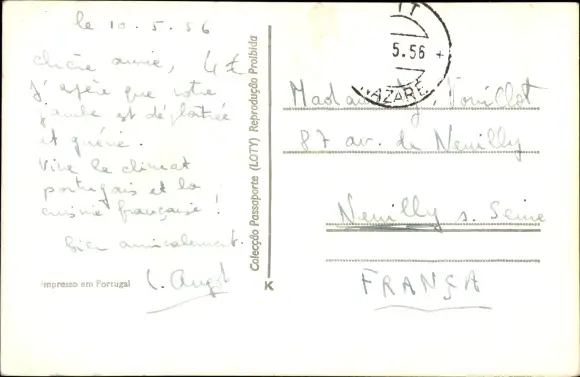 le 10.5.56
chère amie,
J'espère que votre
jambe est déplâtrée
et guérie.
Vive le climat
portugais et la
cuisine française !
bien amicalement.
Impresso em Portugal
Colecção Passaporte (LOTY) Reprodução Proibida
K
5.56
NAZARÉ
Madame Vouillot
87 av. de Neuilly
Neuilly s. Seine
FRANÇA